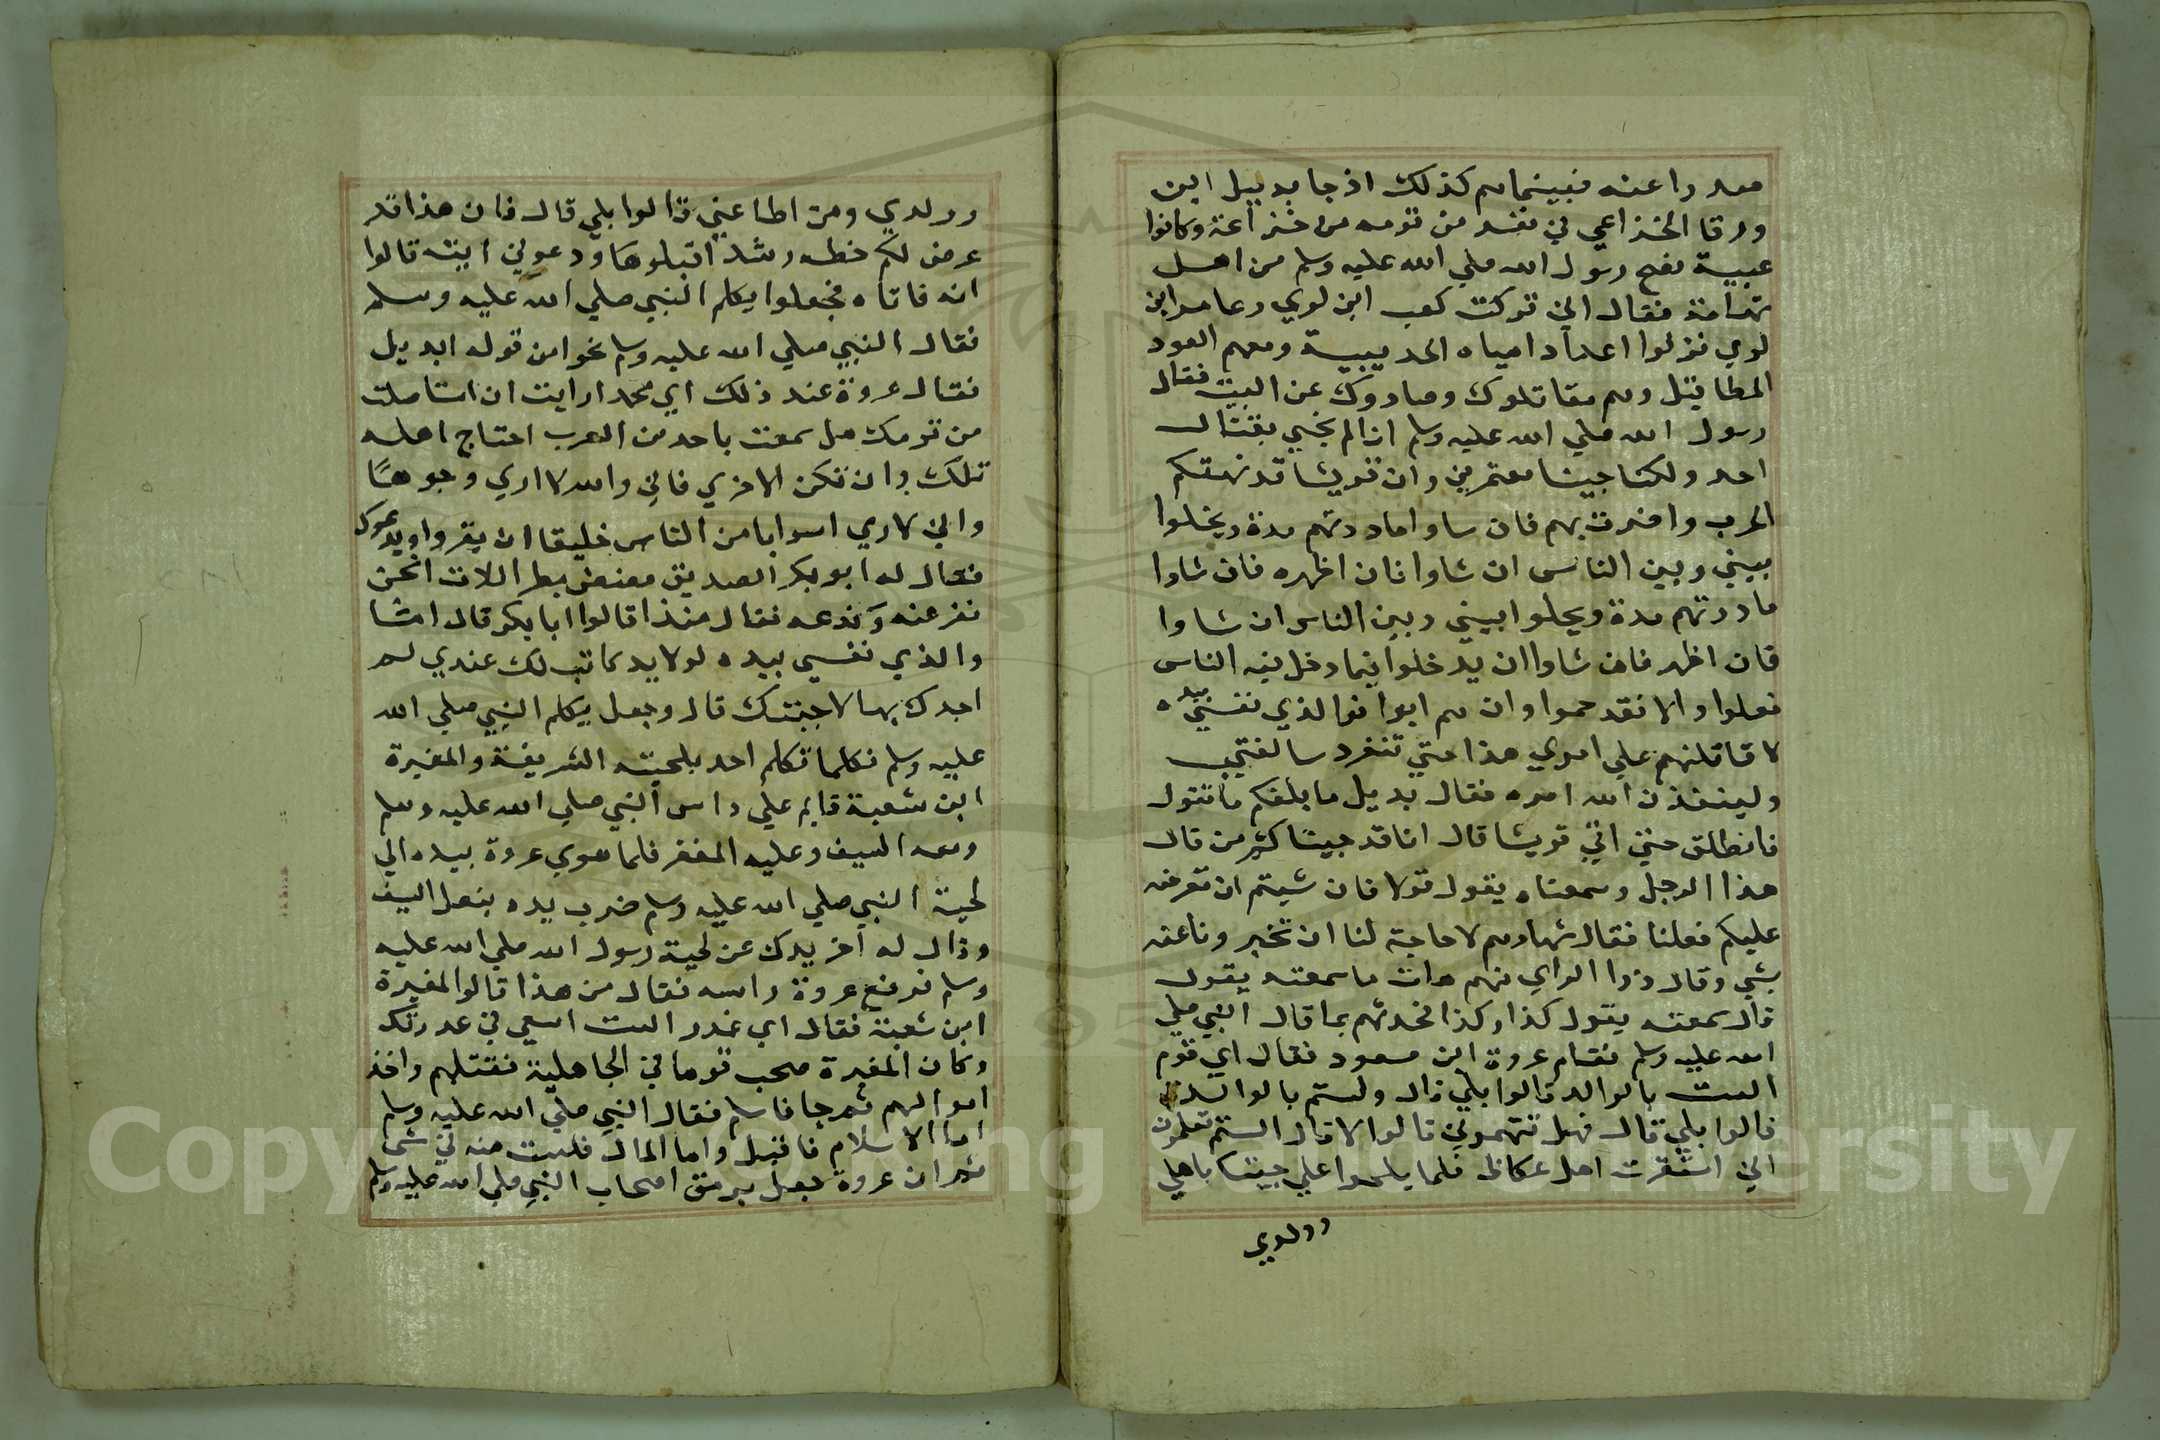 صدروا عنه فبينما هم كذلك اذ جا بديل ابن
ورقا الخزاعي في نفر من قومه من خزاعة وكانوا
عيبة نصح رسول الله صلي الله عليه وسلم من اهل
تهامة فقال اني تركت كعب ابن لوي وعامر ابن
لوي نزلوا اعدادا مياه الحديبية ومعهم العود
المطافيل وهم مقاتلوك وصادوك عن البيت فقال
رسول الله صلي الله عليه وسلم انا لم نجي بقتال
احد ولكنا جينا معتمرين وان قريشا قد نهكتم
الحرب واضرت بهم فان شاوا ماددتهم مدة ويخلوا
بيني وبين الناس ان شاوا فان اظهره فان شاوا
ماددتهم مدة ويحلوا بيني وبين الناس ان شاوا
فان اظهر فان شاوا ان يدخلوا فيما دخل فيه الناس
فعلوا والا فقد جموا وان هم ابوا فوالذي نفسي بيده
لاقاتلنهم علي امري هذا حتي تنفرد سالفتي
ولينفذن الله امره فقال بديل سابلغهم ما تقول
فانطلق حتي اتي قريشا قال انا قد جيناكم من قال
هذا الرجل وسمعناه يقول قولا فان شيتم ان نعرضه
عليكم فعلنا فقال سفهاوهم لا حاجة لنا ان تخبرونا عنه
بشي وقال ذوا الراي منهم هات ما سمعته يقول
قال سمعته يقول كذا وكذا فحدثهم بما قال النبي صلي
الله عليه وسلم فقام عروة ابن مسعود فقال اي قوم
الست بالوالد قالوا بلي قال ولستم بالولد
قالوا بلي قال فهل تتهموني قالوا لا قال الستم تعلمون
اني استنفرت اهل عكاظ فلما بلحوا علي جيتكم باهلي
وولدي
وولدي ومن اطاعني قالوا بلي قال فان هذا قد
عرض لكم خطه رشد اقبلوها ودعوني اتيه قالوا
ائته فاتاه فجعلوا يكلم النبي صلي الله عليه وسلم
فقال النبي صلي الله عليه وسلم نحوا من قوله لبديل
فقال عروة عند ذلك اي محمد ارايت ان استاصلت
من قومك هل سمعت باحد من العرب اجتاح اهله
قبلك وان تكن الاخري فاني والله لا اري وجوها
واني لاري اسوابا من الناس خليقا ان يفروا ويدعوك
فقال له ابو بكر الصديق مصص بظر اللات انحن
نفر عنه وندعه فقال من ذا قالوا ابا بكر قال اما
والذي نفسي بيده لولا يد كانت لك عندي لم
اجدك بها لاجبتك قال وجعل يكلم النبي صلي الله
عليه وسلم فكلما تكلم اخد بلحيته الشريفة والمغيرة
ابن شعبة قايم علي راس النبي صلي الله عليه وسلم
ومعه السيف وعليه المغفر فلما هوي عروة بيده الي
لحية النبي صلي الله عليه وسلم ضرب يده بنصل السيف
وقال له اخر يدك عن لحية رسول الله صلي الله عليه
وسلم فرفع عروة راسه فقال من هذا قالوا المغيرة
ابن شعبة فقال اي غدر الست اسعي في غدرتك
وكان المغيرة صحب قوما في الجاهلية فقتلهم واخذ
اموالهم ثم جا فاسلم فقال النبي صلي الله عليه وسلم
اما الاسلام فاقبل واما المال فلست منه في شي
ثم ان عروة جعل يرمق اصحاب النبي صلي الله عليه وسلم